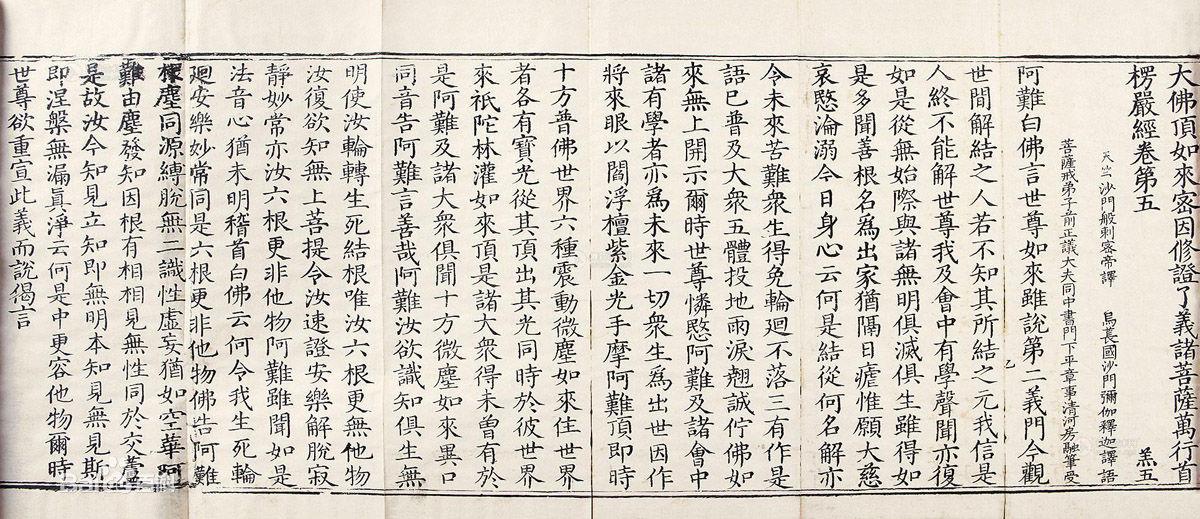 大佛頂如來密因修證了義諸菩薩萬行首
楞嚴經卷第五 羔五
天竺沙門般剌密帝譯 烏萇國沙門彌伽釋迦譯語
菩薩戒弟子前正議大夫同中書門下平章事清河房融筆受
阿難白佛言世尊如來雖說第二義門今觀
世間解結之人若不知其所結之元我信是
人終不能解世尊我及會中有學聲聞亦復
如是從無始際與諸無明俱滅俱生雖得如
是多聞善根名為出家猶隔日瘧惟願大慈
哀愍淪溺今日身心云何是結從何名解亦
令未來苦難衆生得免輪迴不落三有作是
語已普及大衆五體投地雨淚翹誠佇佛如
來無上開示爾時世尊憐愍阿難及諸會中
諸有學者亦為未來一切衆生為出世因作
將來眼以閻浮檀紫金光手摩阿難頂即時
十方普佛世界六種震動微塵如來住世界
者各有寶光從其頂出其光同時於彼世界
來祇陀林灌如來頂是諸大衆得未曾有於
是阿難及諸大衆俱聞十方微塵如來異口
同音告阿難言善哉阿難汝欲識知俱生無
明使汝輪轉生死結根唯汝六根更無他物
汝復欲知無上菩提令汝速證安樂解脫寂
靜妙常亦汝六根更非他物阿難雖聞如是
法音心猶未明稽首白佛云何令我生死輪
迴安樂妙常同是六根更非他物佛告阿難
根塵同源縛脫無二識性虛妄猶如空華阿
難由塵發知因根有相相見無性同於交蘆
是故汝今知見立知即無明本知見無見斯
即涅槃無漏真淨云何是中更容他物爾時
世尊欲重宣此義而說偈言